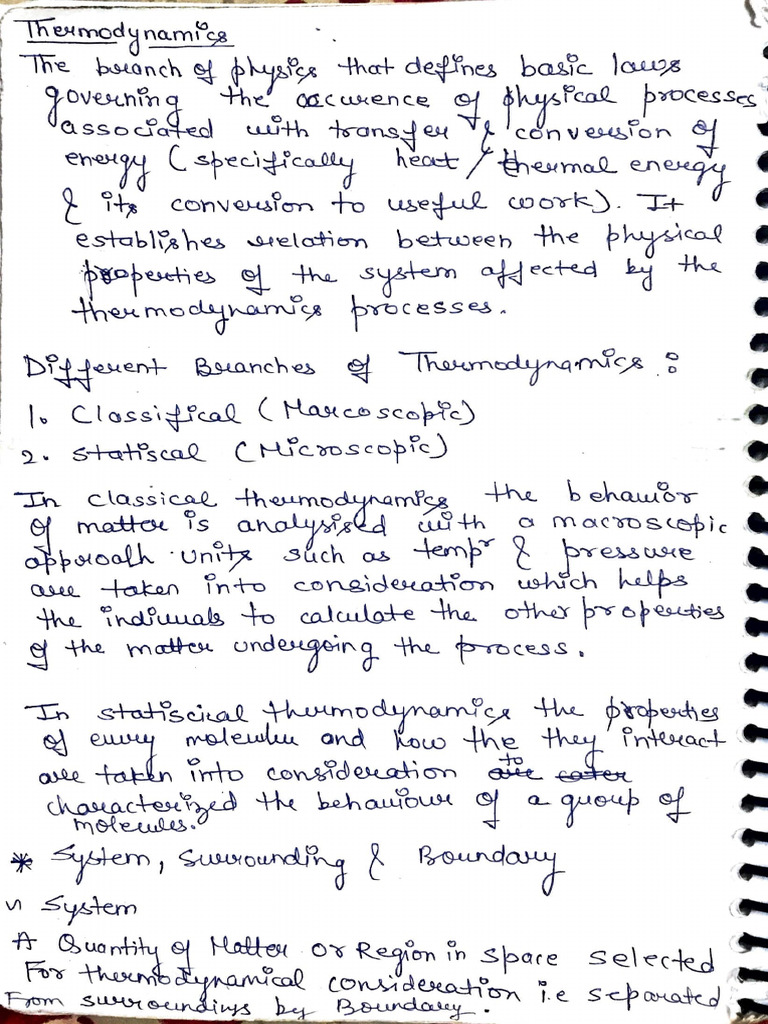 Thermodynamics
The branch of physics that defines basic laws
governing the occurence of physical processes
associated with transfer & conversion of
energy (specifically heat / thermal energy
& its conversion to useful work). It
establishes relation between the physical
properties of the system affected by the
thermodynamics processes.
Different Branches of Thermodynamics :
1. Classifical (Marcoscopic)
2. Statiscal (Microscopic)
In classical thermodynamics the behavior
of matter is analysised with a macroscopic
approach units such as tempr & pressure
are taken into consideration which helps
the indiuuals to calculate the other properties
of the matter undergoing the process.
In statiscical thermodynamics the properties
of every molecular and how the they interact
are taken into consideration to
characterized the behaviour of a group of
molecules.
* System, Surrounding & Boundary
System
A Quantity of Matter or Region in space selected
For thermodynamical consideration i.e separated
From surroundings by Boundary.